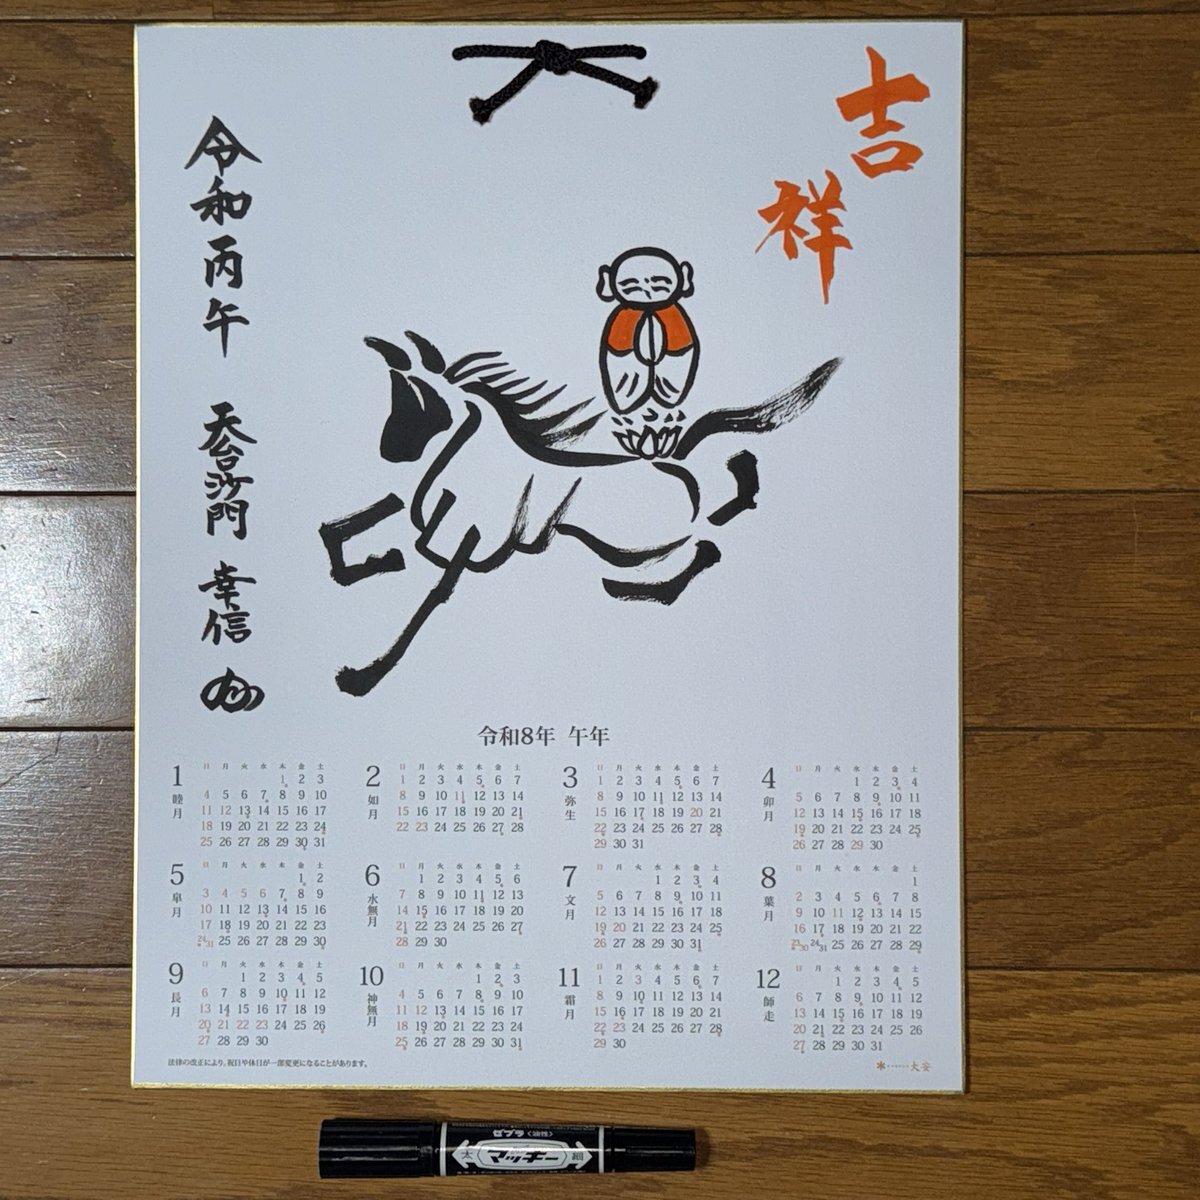 吉祥
令和丙午 天台沙門 幸信
令和8年 午年
1 睦月
日 月 火 水 木 金 土
1 2 3
4 5 6 7 8 9 10
11 12 13 14 15 16 17
18 19 20 21 22 23 24
25 26 27 28 29 30 31
2 如月
日 月 火 水 木 金 土
1 2 3 4 5 6 7
8 9 10 11 12 13 14
15 16 17 18 19 20 21
22 23 24 25 26 27 28
3 弥生
日 月 火 水 木 金 土
1 2 3 4 5 6 7
8 9 10 11 12 13 14
15 16 17 18 19 20 21
22 23 24 25 26 27 28
29 30 31
4 卯月
日 月 火 水 木 金 土
1 2 3 4
5 6 7 8 9 10 11
12 13 14 15 16 17 18
19 20 21 22 23 24 25
26 27 28 29 30
5 皐月
日 月 火 水 木 金 土
1 2
3 4 5 6 7 8 9
10 11 12 13 14 15 16
17 18 19 20 21 22 23
24/31 25 26 27 28 29 30
6 水無月
日 月 火 水 木 金 土
1 2 3 4 5 6
7 8 9 10 11 12 13
14 15 16 17 18 19 20
21 22 23 24 25 26 27
28 29 30
7 文月
日 月 火 水 木 金 土
1 2 3 4
5 6 7 8 9 10 11
12 13 14 15 16 17 18
19 20 21 22 23 24 25
26 27 28 29 30 31
8 葉月
日 月 火 水 木 金 土
1
2 3 4 5 6 7 8
9 10 11 12 13 14 15
16 17 18 19 20 21 22
23/30 24/31 25 26 27 28 29
9 長月
日 月 火 水 木 金 土
1 2 3 4 5
6 7 8 9 10 11 12
13 14 15 16 17 18 19
20 21 22 23 24 25 26
27 28 29 30
10 神無月
日 月 火 水 木 金 土
1 2 3
4 5 6 7 8 9 10
11 12 13 14 15 16 17
18 19 20 21 22 23 24
25 26 27 28 29 30 31
11 霜月
日 月 火 水 木 金 土
1 2 3 4 5 6 7
8 9 10 11 12 13 14
15 16 17 18 19 20 21
22 23 24 25 26 27 28
29 30
12 師走
日 月 火 水 木 金 土
1 2 3 4 5
6 7 8 9 10 11 12
13 14 15 16 17 18 19
20 21 22 23 24 25 26
27 28 29 30 31
法律の改正により、祝日や休日が一部変更になることがあります。
*・・・・・・大安
ゼブラ〈油性〉
太 マッキー 細